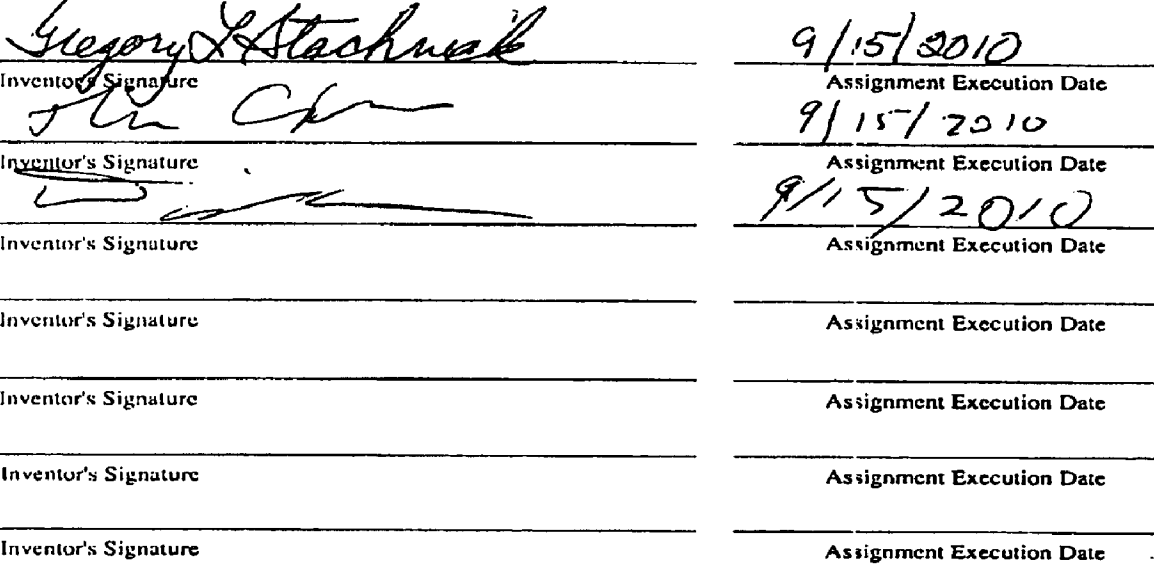 Gregory L Stachniak 9/15/2010
Inventor's Signature Assignment Execution Date
9/15/2010
Inventor's Signature Assignment Execution Date
9/15/2010
Inventor's Signature Assignment Execution Date
Inventor's Signature Assignment Execution Date
Inventor's Signature Assignment Execution Date
Inventor's Signature Assignment Execution Date
Inventor's Signature Assignment Execution Date